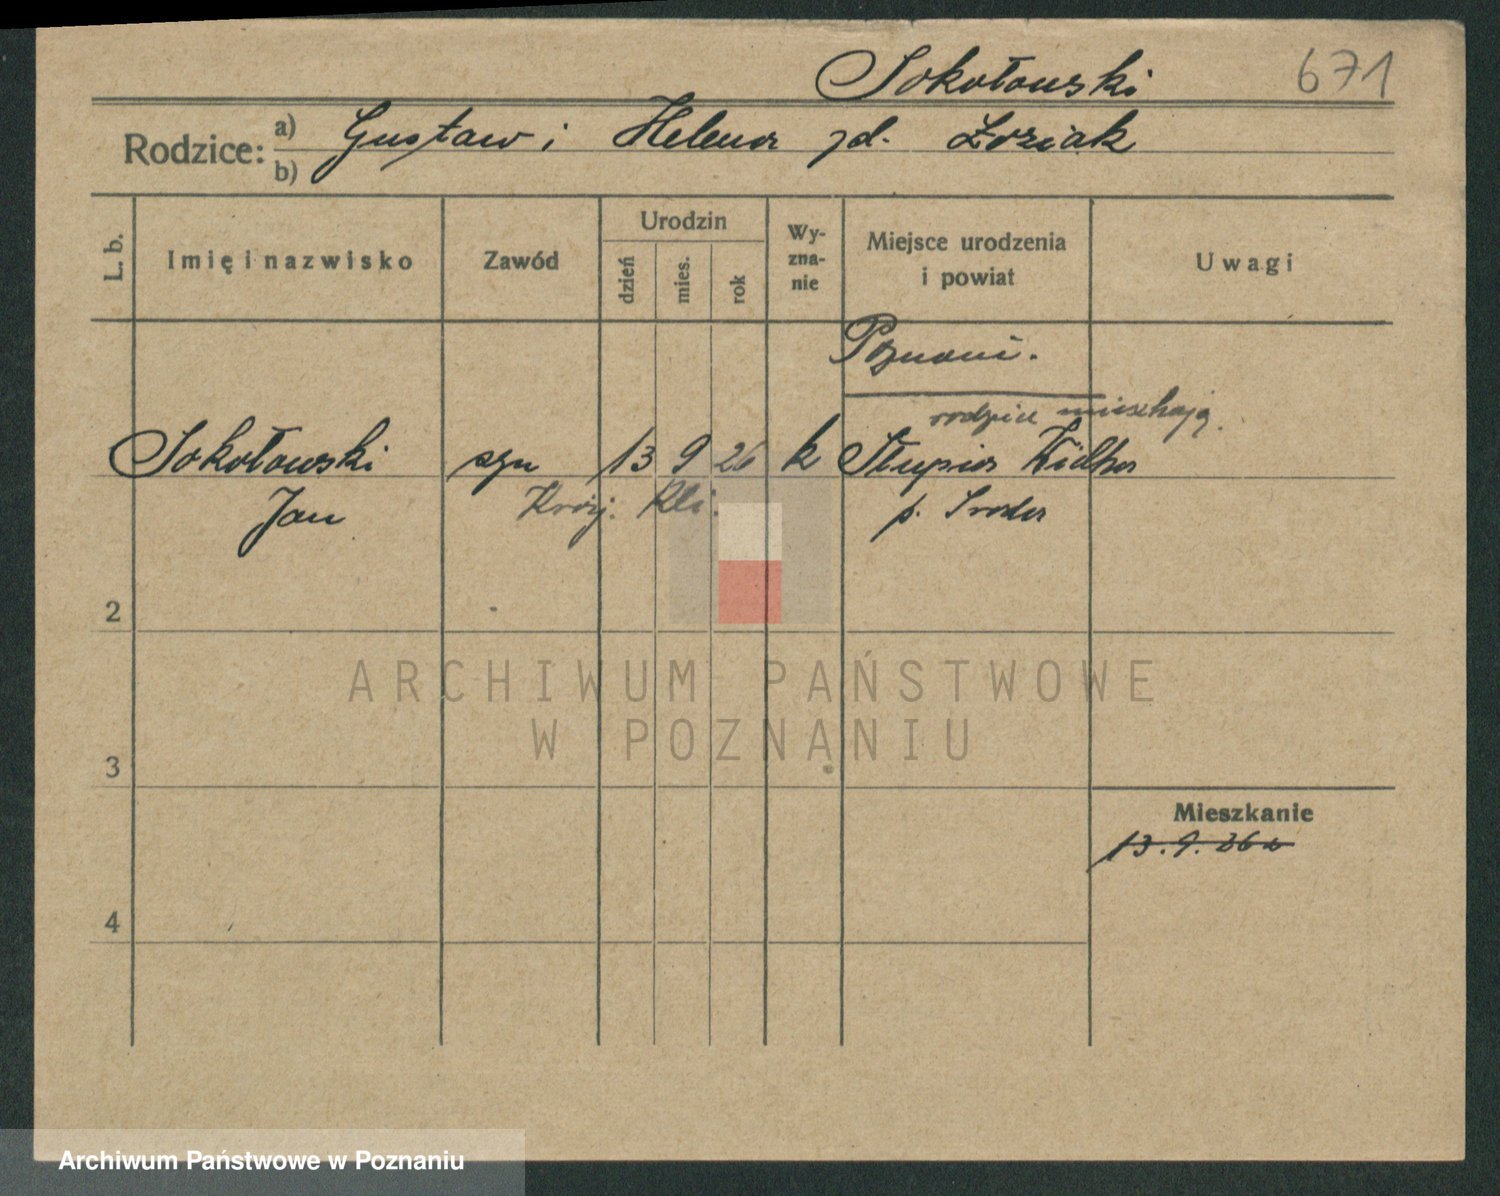 Sokołowski 671
Rodzice: a) Gustaw i Helena zd. Łoziak
b)
L. b. Imię i nazwisko Zawód Urodzin dzień mies. rok Wy-zna-nie Miejsce urodzenia i powiat Uwagi
Poznań.
rodzice mieszkają
Sokołowski syn 13 9 26 k Słupia Wielka
Jan p. Środa
2
ARCHIWUM PAŃSTWOWE
W POZNANIU
3
Mieszkanie
13.9.26
4
Archiwum Państwowe w Poznaniu